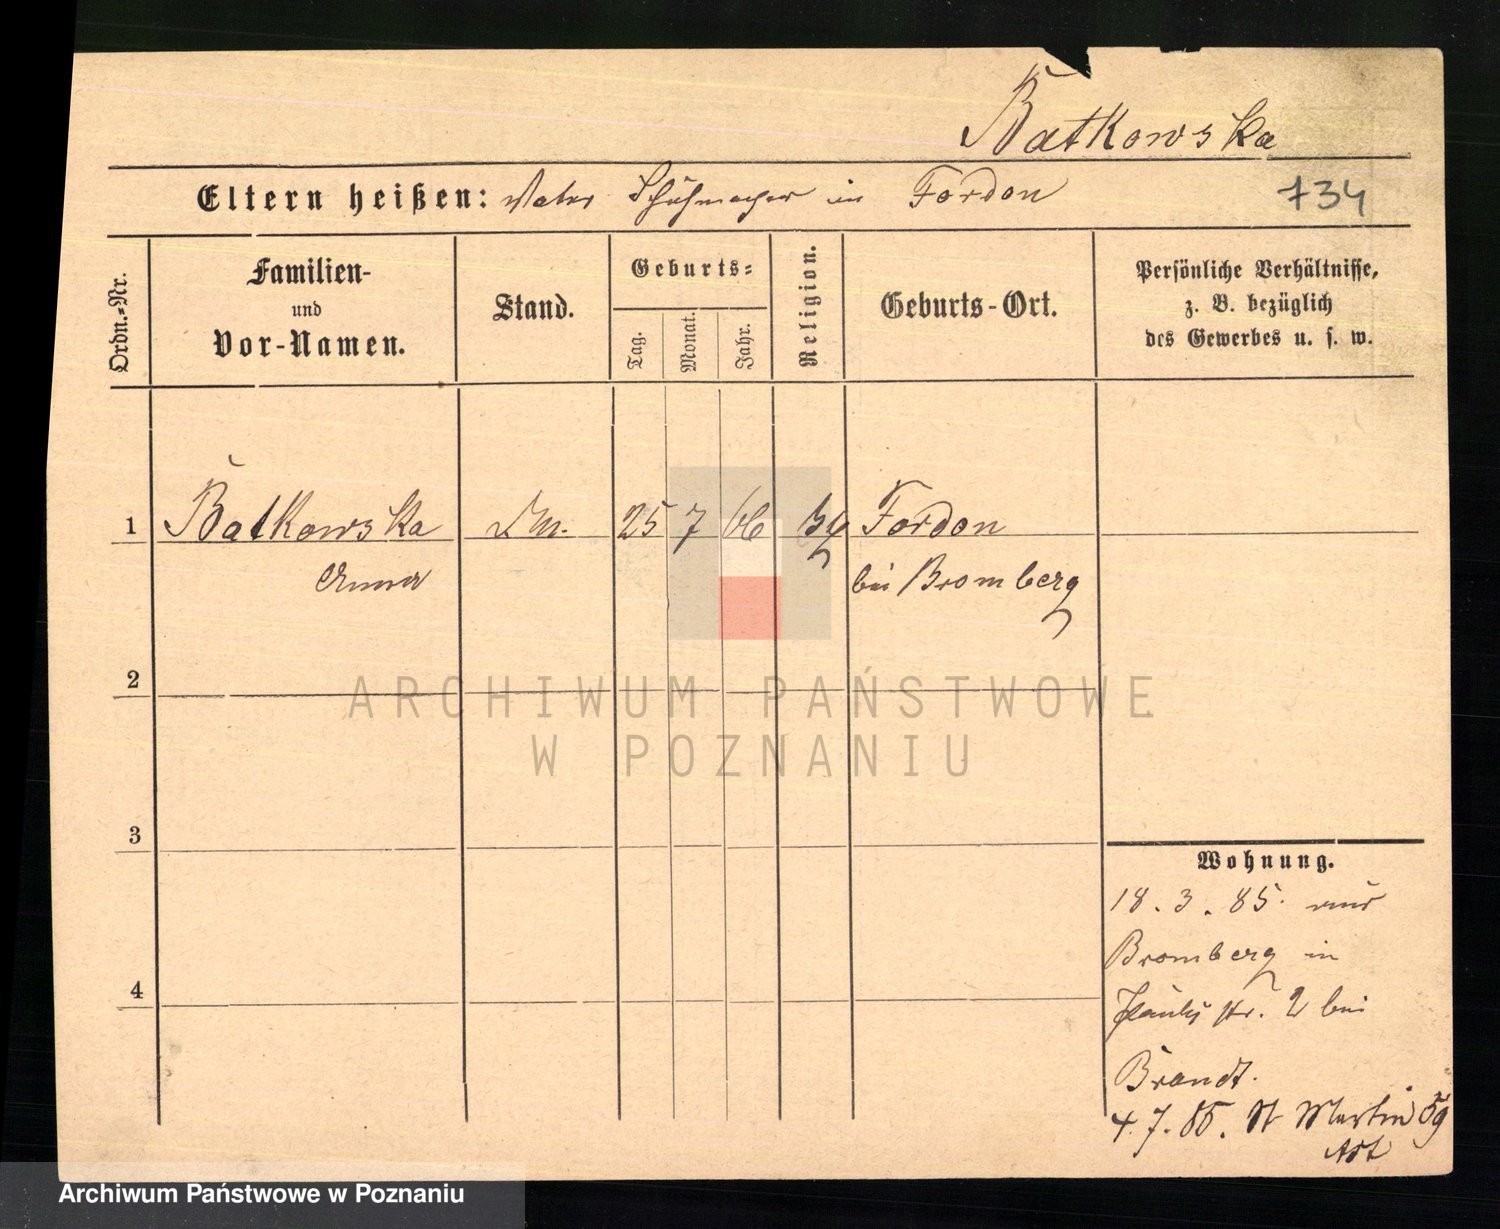 Batkowska
Eltern heißen: Vater Schuhmacher in Fordon
734
Ordn.-Nr.
Familien-
und
Vor-Namen.
Stand.
Geburts-
Tag.
Monat.
Jahr.
Religion.
Geburts-Ort.
Persönliche Verhältnisse,
z. B. bezüglich
des Gewerbes u. s. w.
1 Batkowska 25 7 66 Fordon
Anna bei Bromberg
2
ARCHIWUM PAŃSTWOWE
W POZNANIU
3
Wohnung.
18. 3. 85. aus
Bromberg in
4
str. 2 bei
Brandt.
4. 7. 85. St Martin 59
Archiwum Państwowe w Poznaniu